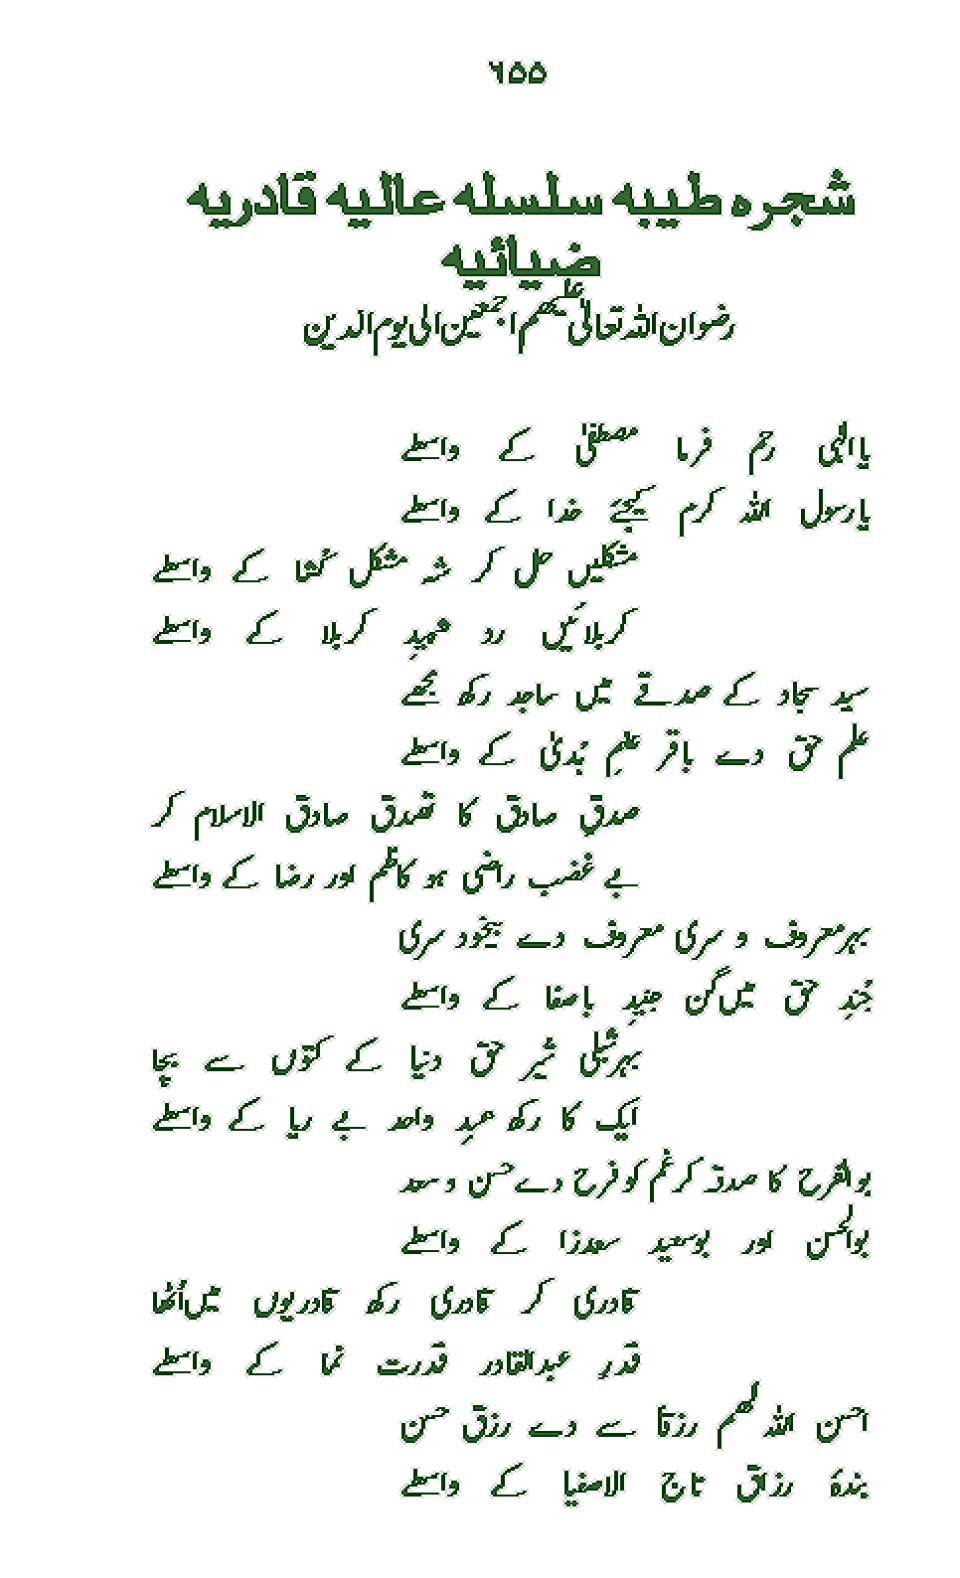 ٦٥٥
شجره طيبه سلسله عاليه قادريه
ضيائيه
رضوان اللہ تعالیٰ علیھم اجمعین الی یوم الدین
یاالٰہی رحم فرما مصطفیٰ کے واسطے
یارسول اللہ کرم کیجئے خدا کے واسطے
مشکلیں حل کر شہ مشکل کُشا کے واسطے
کربلائیں رد شہیدِ کربلا کے واسطے
سید سجاد کے صدقے میں ساجد رکھ مجھے
علم حق دے باقر علمِ ہُدیٰ کے واسطے
صدقِ صادق کا تصدق صادق الاسلام کر
بے غضب راضی ہو کاظم اور رضا کے واسطے
بہرمعروف و سری معروف دے بیخود سری
جُندِ حق میں گن جنیدِ باصفا کے واسطے
بہرشبلی شیر حق دنیا کے کتوں سے بچا
ایک کا رکھ عبدِ واحد بے ریا کے واسطے
بوالفرح کا صدقہ کر غم کو فرح دے حسن و سعد
بوالحسن اور بوسعید سعدزا کے واسطے
قادری کر قادری رکھ قادریوں میں اُٹھا
قدرِ عبدالقادر قدرت نما کے واسطے
احسن اللہ لھم رزقا سے دے رزق حسن
بندۂ رزاق تاج الاصفیا کے واسطے